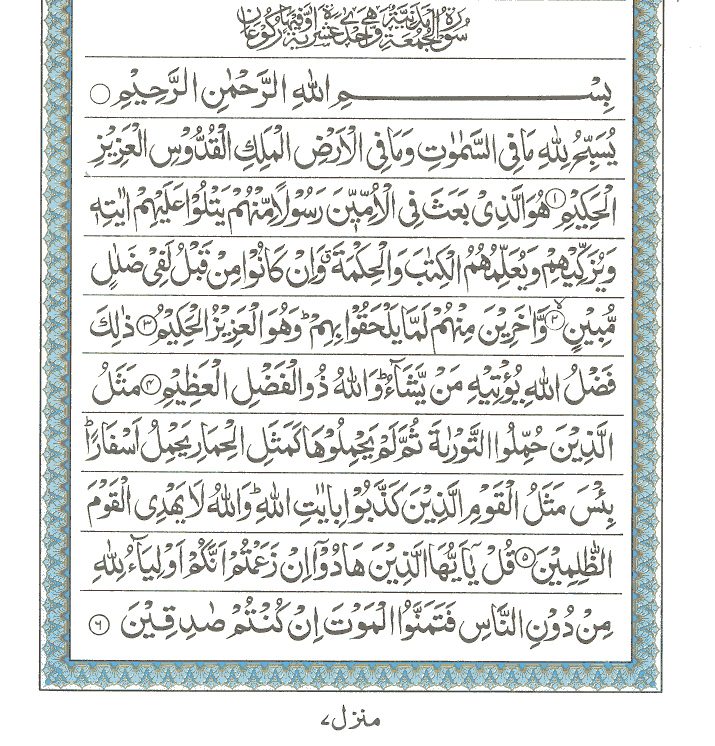 سُوْرَةُ الْجُمُعَةِ مَدَنِيَّةٌ وَّهِيَ اِحْدٰى عَشْرَةَ اٰيَةً وَّفِيْهَا رُكُوْعَانِ
بِسْمِ اللّٰهِ الرَّحْمٰنِ الرَّحِيْمِ ○
يُسَبِّحُ لِلّٰهِ مَا فِى السَّمٰوٰتِ وَمَا فِى الْاَرْضِ الْمَلِكِ الْقُدُّوْسِ الْعَزِيْزِ
الْحَكِيْمِ ۝۱ هُوَ الَّذِىْ بَعَثَ فِى الْاُمِّيّٖنَ رَسُوْلًا مِّنْهُمْ يَتْلُوْا عَلَيْهِمْ اٰيٰتِهٖ
وَيُزَكِّيْهِمْ وَيُعَلِّمُهُمُ الْكِتٰبَ وَالْحِكْمَةَ ۗ وَاِنْ كَانُوْا مِنْ قَبْلُ لَفِىْ ضَلٰلٍ
مُّبِيْنٍ ۝۲ۙ وَّاٰخَرِيْنَ مِنْهُمْ لَمَّا يَلْحَقُوْا بِهِمْ ؕ وَهُوَ الْعَزِيْزُ الْحَكِيْمُ ۝۳ ذٰلِكَ
فَضْلُ اللّٰهِ يُؤْتِيْهِ مَنْ يَّشَآءُ ؕ وَاللّٰهُ ذُو الْفَضْلِ الْعَظِيْمِ ۝۴ مَثَلُ
الَّذِيْنَ حُمِّلُوا التَّوْرٰىةَ ثُمَّ لَمْ يَحْمِلُوْهَا كَمَثَلِ الْحِمَارِ يَحْمِلُ اَسْفَارًا ؕ
بِئْسَ مَثَلُ الْقَوْمِ الَّذِيْنَ كَذَّبُوْا بِاٰيٰتِ اللّٰهِ ؕ وَاللّٰهُ لَا يَهْدِى الْقَوْمَ
الظّٰلِمِيْنَ ۝۵ قُلْ يٰٓاَيُّهَا الَّذِيْنَ هَادُوْٓا اِنْ زَعَمْتُمْ اَنَّكُمْ اَوْلِيَآءُ لِلّٰهِ
مِنْ دُوْنِ النَّاسِ فَتَمَنَّوُا الْمَوْتَ اِنْ كُنْتُمْ صٰدِقِيْنَ ۝۶
منزل ۷